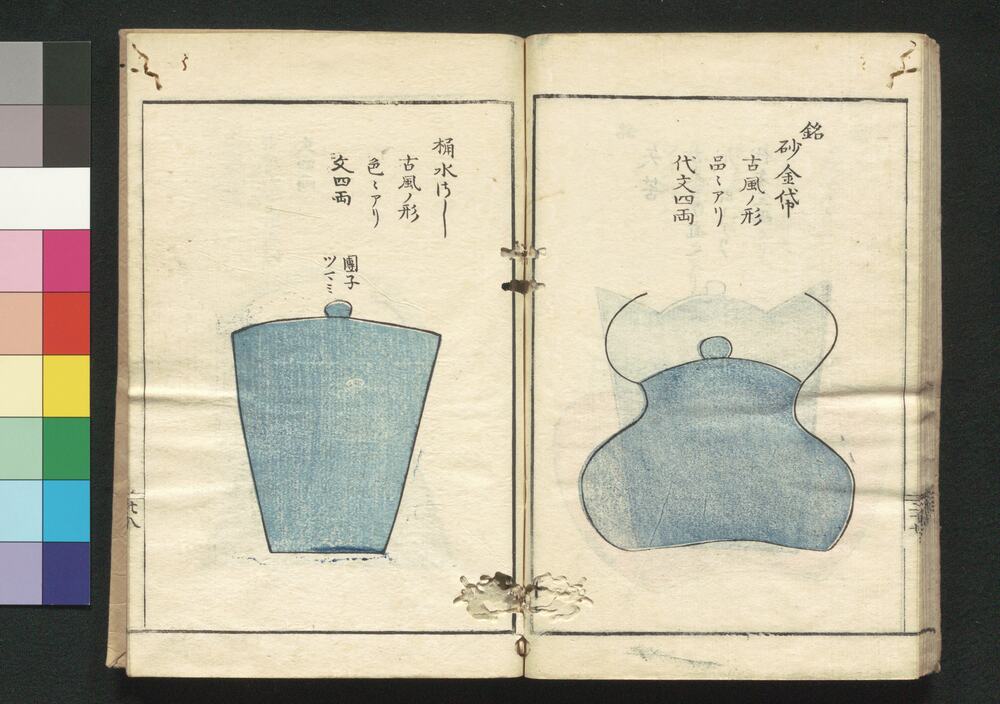 銘
砂金袋
古風ノ形
品〻アリ
代文四両
桶水さし
古風ノ形
色〻アリ
文四両
團子
ツマミ
廿八